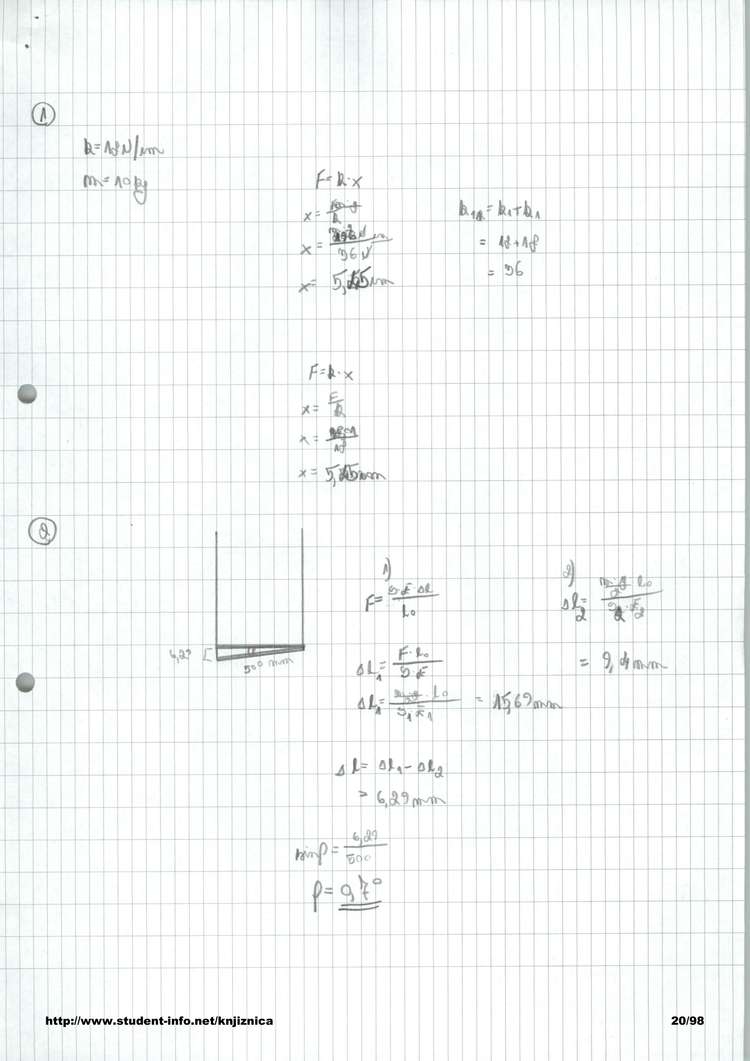 1
k=18N/cm
m=10kg
F=k·x
x=m·g/k
x=
x=5,45cm
k₁₁=k₁+k₁
=18+18
=36
F=k·x
x=F/k
x=
x=5,45cm
2
6,29
500 mm
1)
F=S·E·Δl/L₀
Δl₁=F·L₀/S·E
Δl₁=·L₀/S₁·E₁=15,69mm
2)
Δl₂=
=9,4mm
Δl=Δl₁-Δl₂
=6,29mm
sinβ=6,29/500
β=0,7°
http://www.student-info.net/knjiznica
20/98